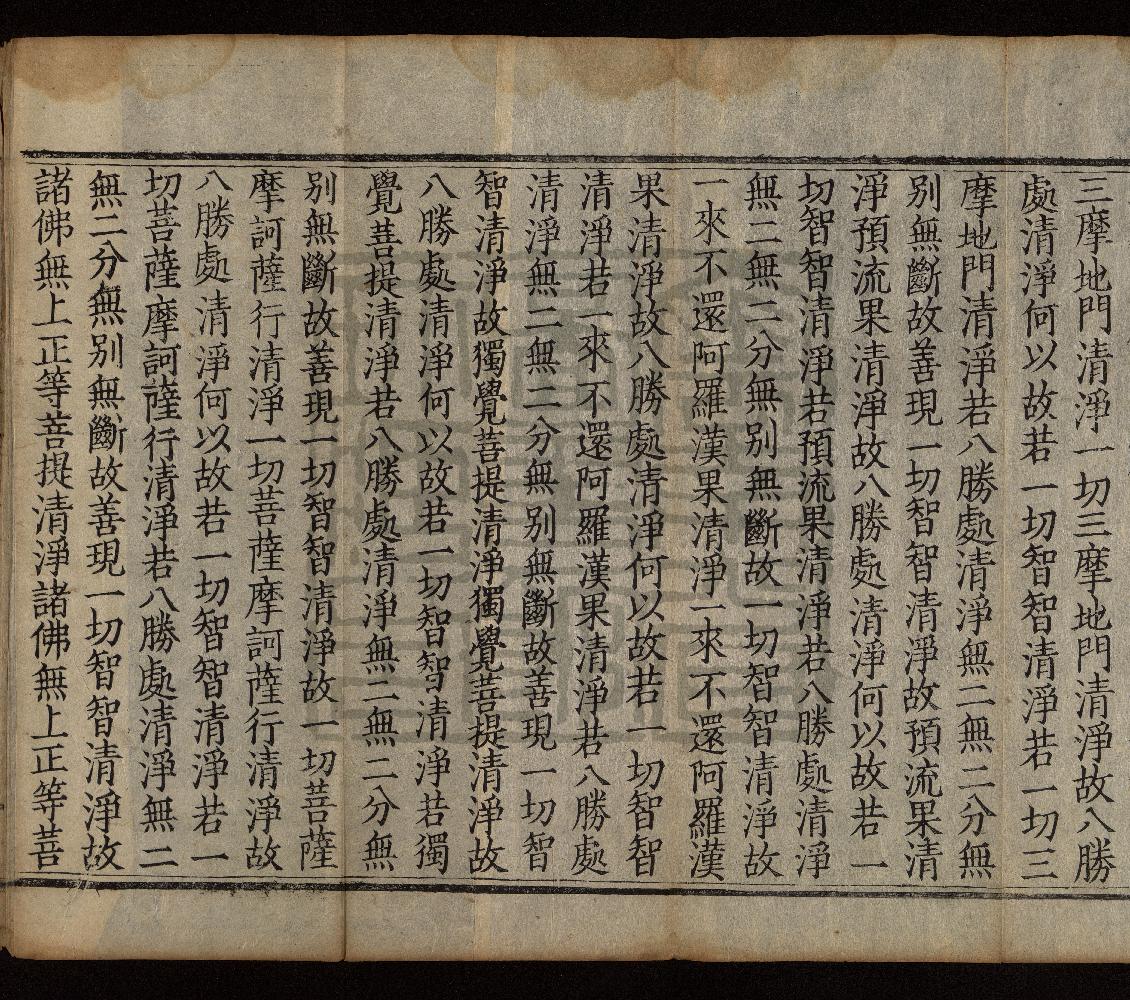 三摩地門清淨一切三摩地門清淨故八勝
處清淨何以故若一切智智清淨若一切三
摩地門清淨若八勝處清淨無二無二分無
別無斷故善現一切智智清淨故預流果清
淨預流果清淨故八勝處清淨何以故若一
切智智清淨若預流果清淨若八勝處清淨
無二無二分無別無斷故一切智智清淨故
一來不還阿羅漢果清淨一來不還阿羅漢
果清淨故八勝處清淨何以故若一切智智
清淨若一來不還阿羅漢果清淨若八勝處
清淨無二無二分無別無斷故善現一切智
智清淨故獨覺菩提清淨獨覺菩提清淨故
八勝處清淨何以故若一切智智清淨若獨
覺菩提清淨若八勝處清淨無二無二分無
別無斷故善現一切智智清淨故一切菩薩
摩訶薩行清淨一切菩薩摩訶薩行清淨故
八勝處清淨何以故若一切智智清淨若一
切菩薩摩訶薩行清淨若八勝處清淨無二
無二分無別無斷故善現一切智智清淨故
諸佛無上正等菩提清淨諸佛無上正等菩